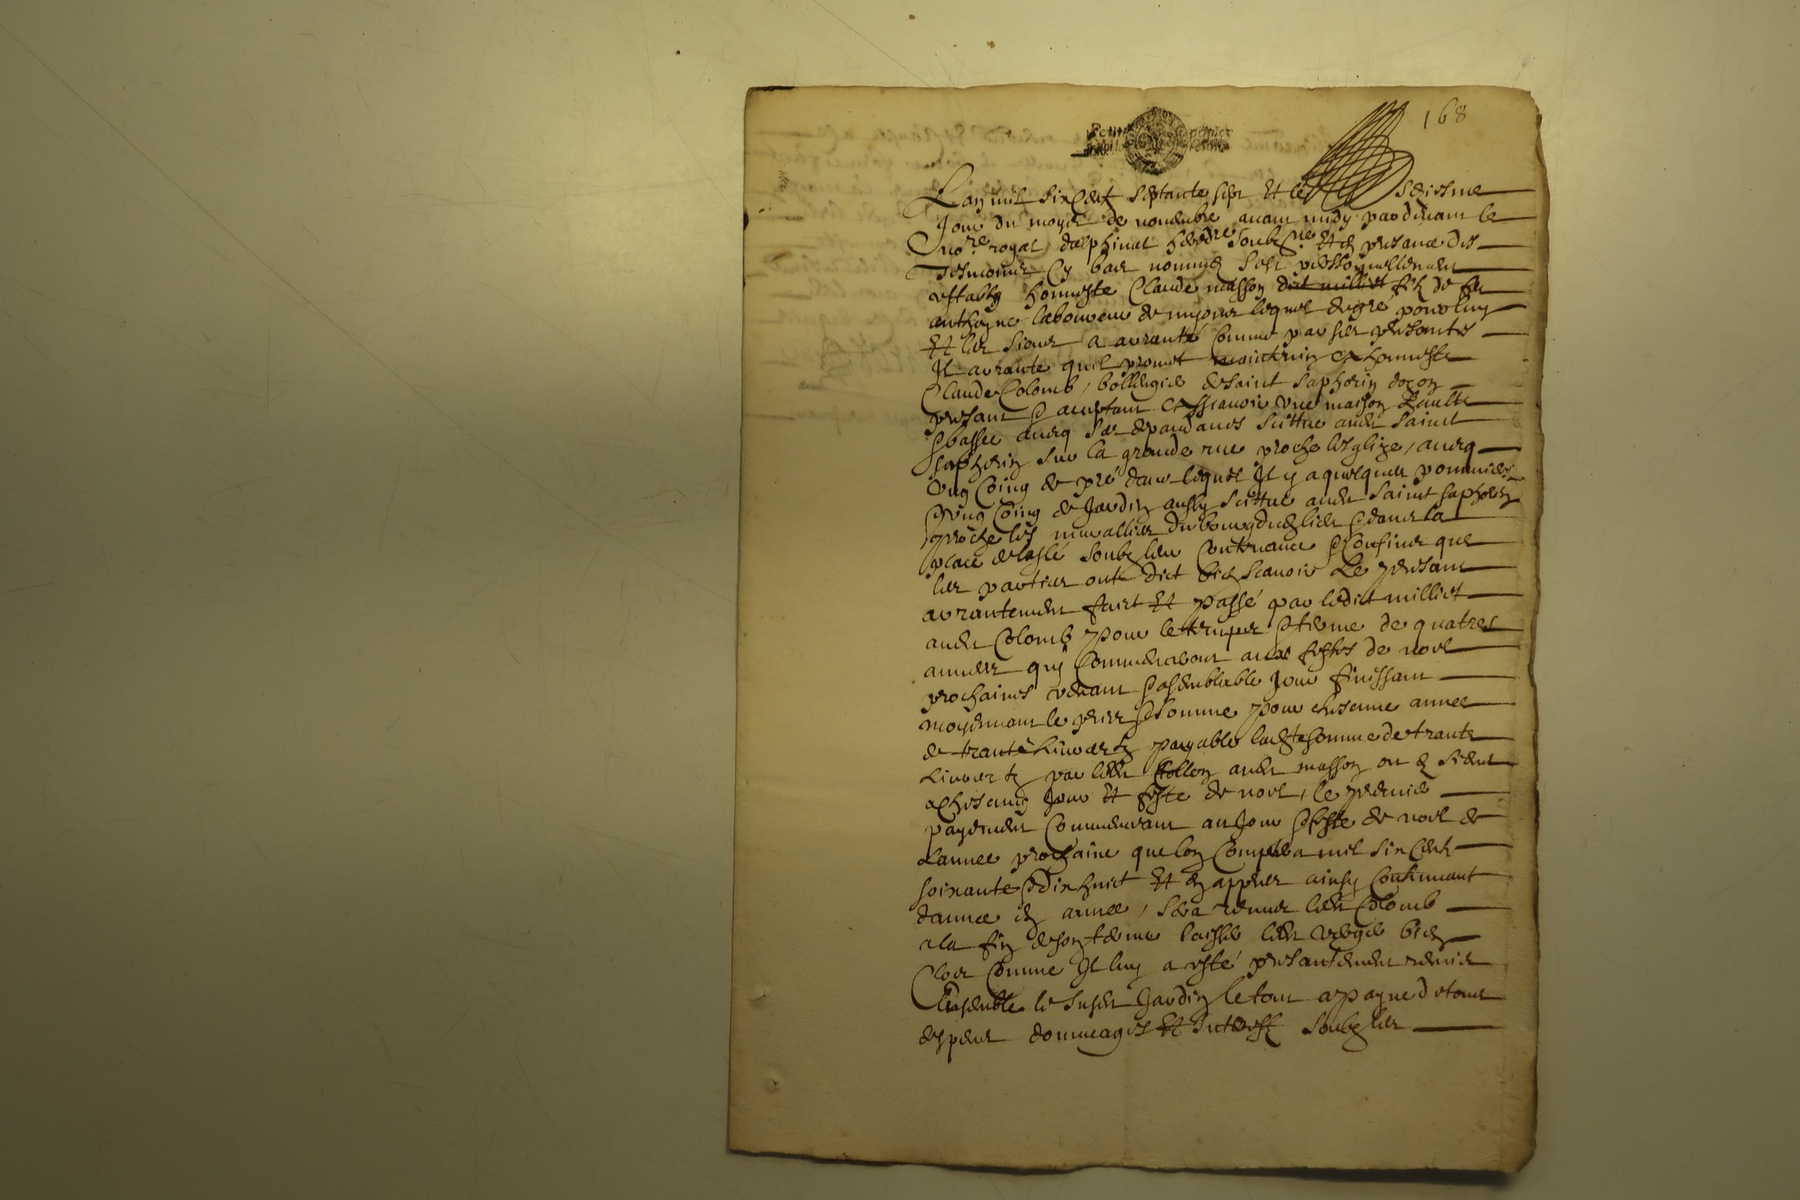 168
Petit papier
L'an mil six cent septante sept et le seiziesme
jour du moys de novembre avant midy pardevant le
no.re royal dalphinal hered.re soubz.ne et en presance des
tesmoins cy bas nommes s'est personnellement
estably honneste Claude masson dict milliet filz de feu
anthoyne laboureur de lequel de gré pour luy
et les siens a arranté comme par ses presantes
Il arrante quil promet maintenir a honneste
Claude Colomb, bollengier de saint saphorin dozon
presant et acceptant assçavoir une maison haulte
et basse avecq ses depandances scittue audit saint
saphorin sur la grande rue proche lesglize, avecq
ung coing de pré dans lequel Il y a quelques pommiers
et ung coing de jardin aussy scittue audit saint saphorin
proche les murallies du bourg dudit lieu et dans la
place de soubz leur contenance et confines que
les parties ont dict bien sçavoir Le presant
arrantement faict et passé par ledit milliet
audit Colomb pour le temps et terme de quatres
annees quy commenceront aux festes de noel
prochaines venant et a semblable jour finissant
moyennant le prix et somme pour chescune annee
de trante livres tz payable ladite somme de trante
livres tz par ledit Collon audit masson ou es siens
a chescung jour et feste de noel, le premier
payement commencant au jour et feste de noel de
lannee prochaine que lon comptera mil six cent
soixante et dix huict et en appres ainsy continuant
dannee en annee, sera tenu ledit Colomb
a la fin de son terme laisser ledit verger bien
clos comme Il luy a esté presantement remis
Ensemble le susdit jardin le tout a payne de tous
despens dommages et interestz soubz les